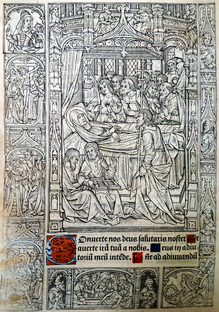 Onuerte nos deus salutaris noster: et
auerte irā tuā a nobis. Deus in adiu
toriū meū intēde. Dñe ad adiuuandū